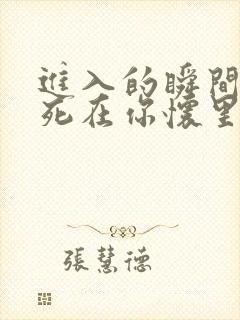 進入的瞬間
死在你懷里
張慧德